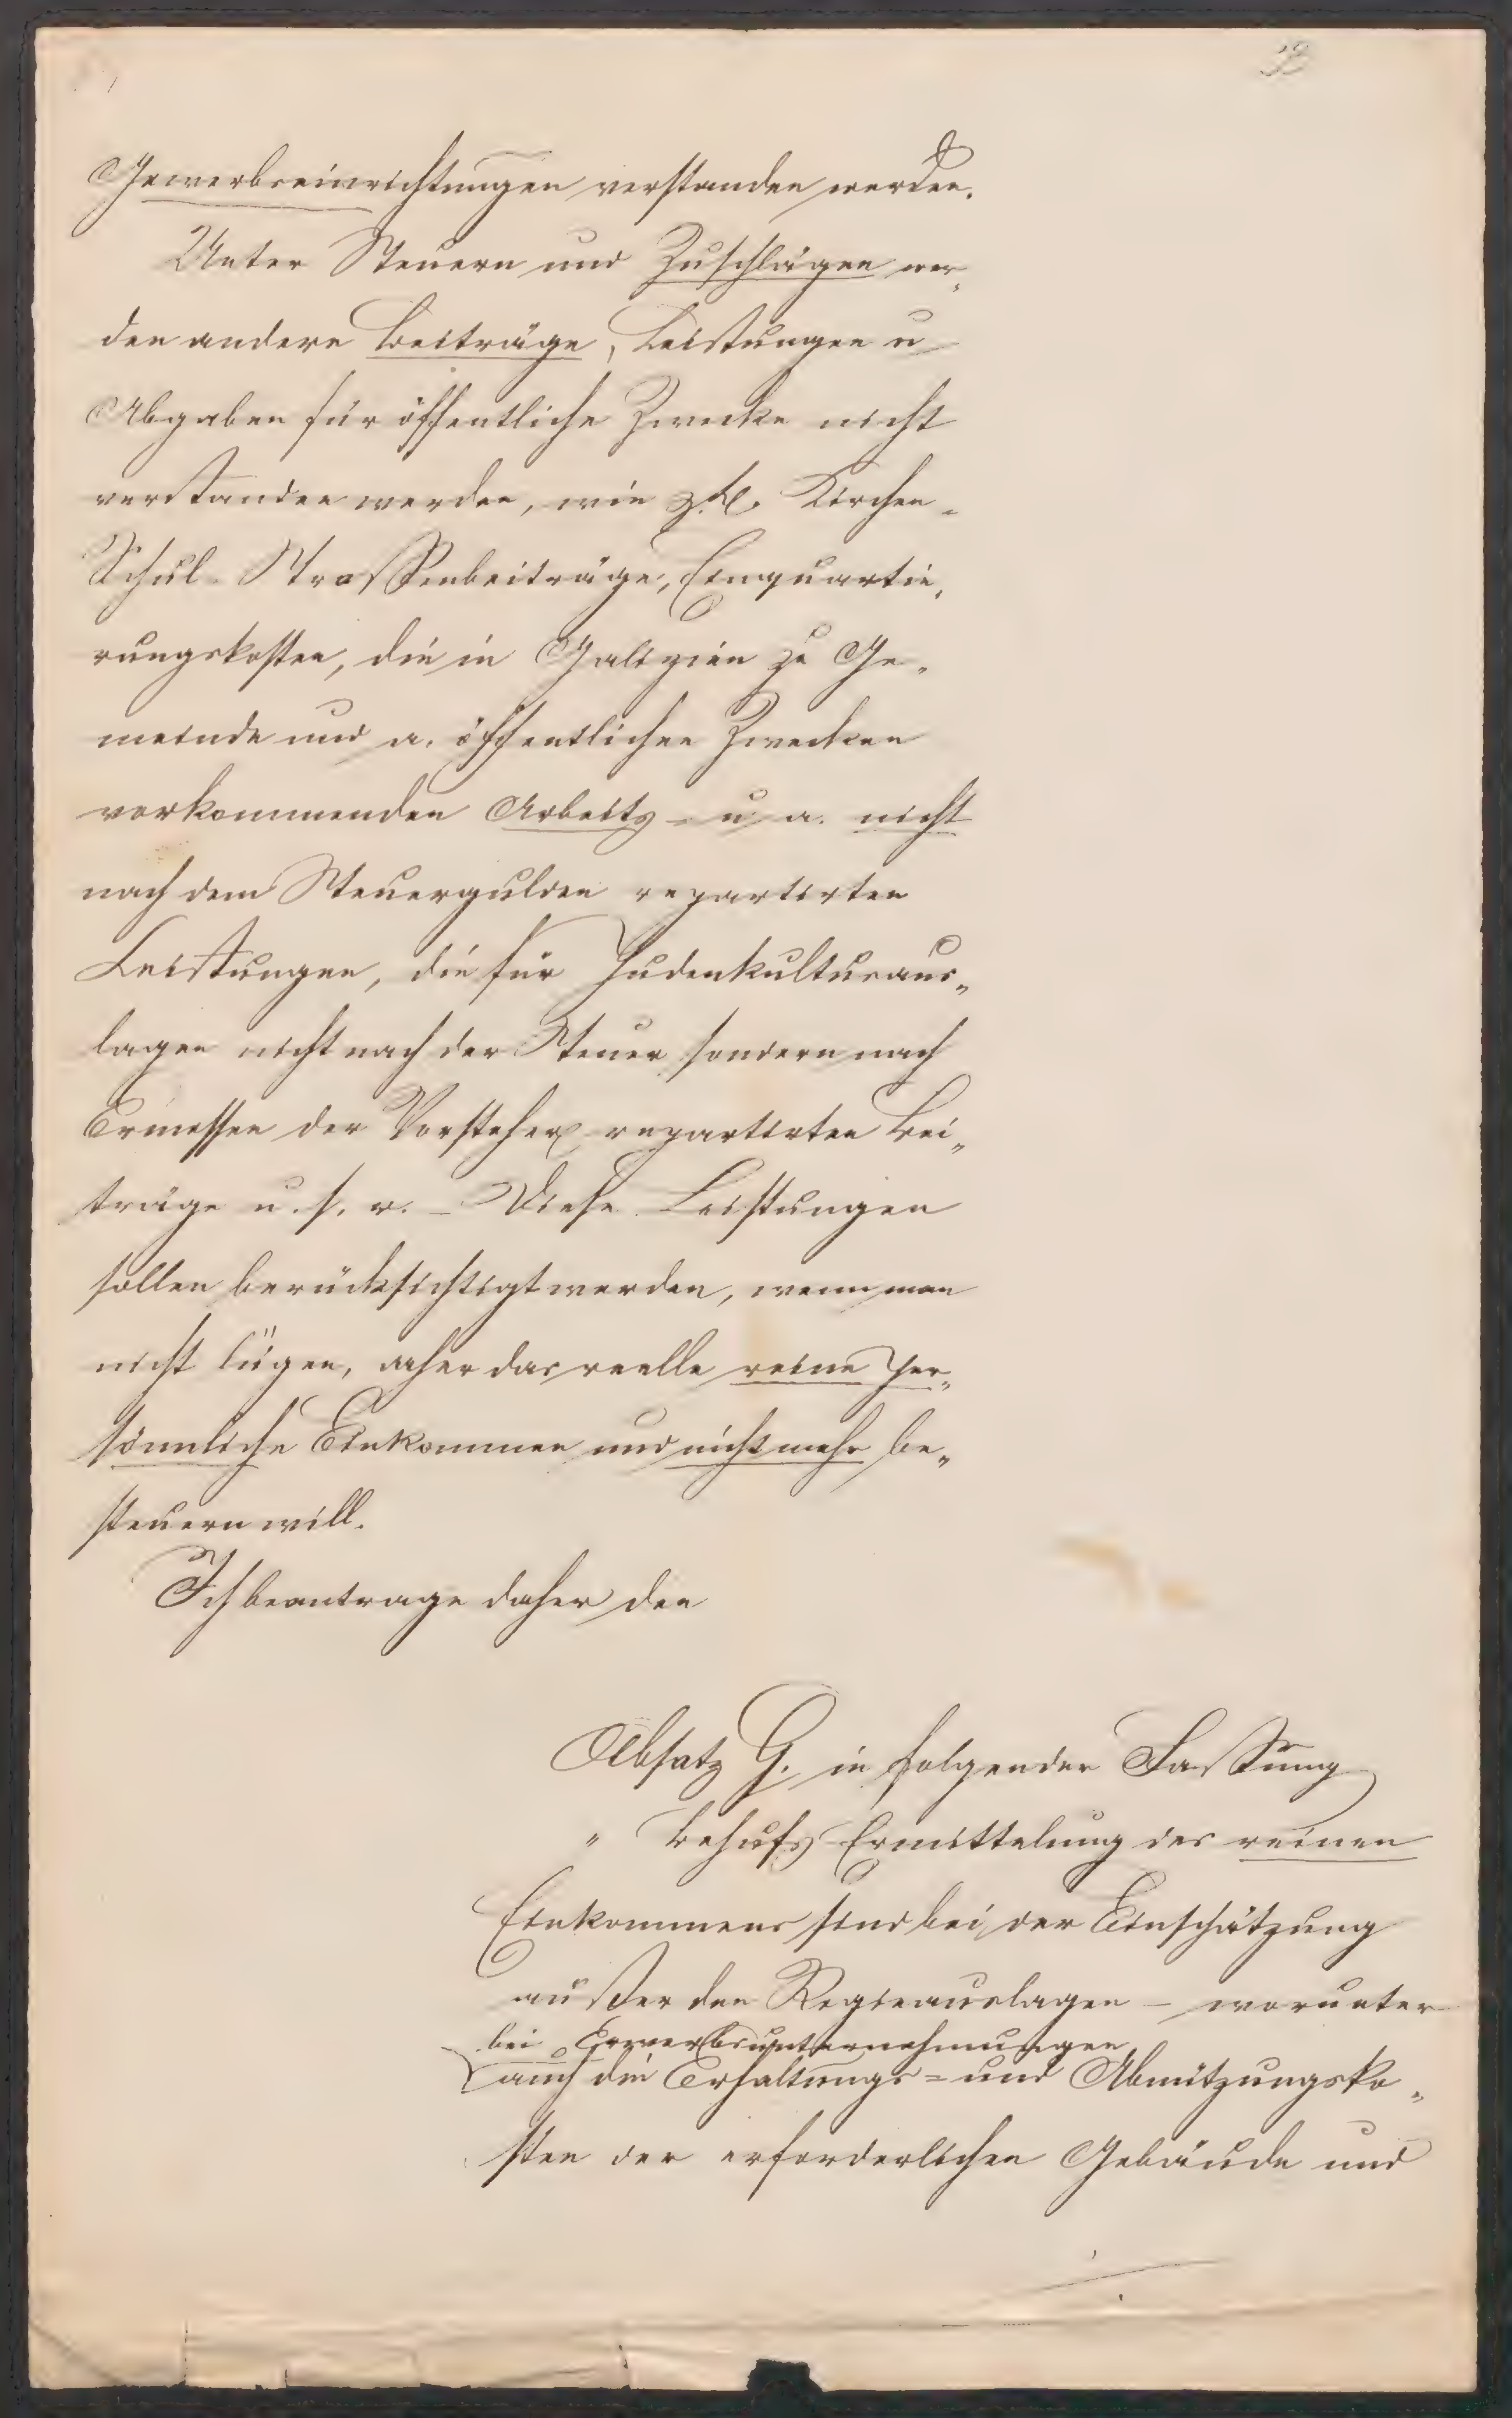 Gewerbseinrichtungen verstanden werden.
Unter Steuern und Zuschlägen wer„
den andere Beiträge, Leistungen u
Abgaben für öffentliche Zwecke nicht
verstanden werden, wie z.B. Kirchen-
Schul- Straßenbeiträge, Einquartie„
rungskosten, die in Galizien zu Ge„
meinde und a. öffentlichen Zwecken
vorkommenden Arbeits- u a. nicht
nach dem Steuergulden repartirten
Leistungen, die für Judenkulturaus„
lagen nicht nach der Steuer sondern nach
Ermessen der Vorsteher repartirten Bei„
träge u. s. w. – Diese Leistungen
sollen berücksichtigt werden, wenn man
nicht lügen, daher das reelle reine per„
sönnliche Einkommen und nicht mehr be„
steuern will.
Ich beantrage daher den
Absatz G. in folgender Fassung
„ Behufs Ermittelung des reinen
Einkommens sind bei der Einschätzung
außer den Regieauslagen – worunter
bei Erwerbsunternehmungen
auch die Erhaltungs= und Abnützungsko„
sten der erforderlichen Gebäude und